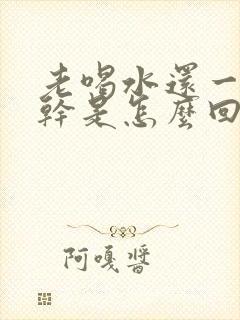 老喝水還一
幹是怎麼回
阿嘎醬